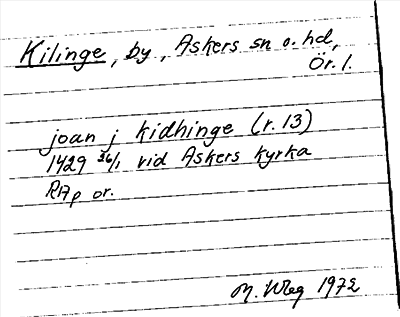 Kilinge, by, Askers sn o. hd,
Ör. l.
joan j kidhinge (r. 13)
1429 26/1 vid Askers kyrka
RAp or.
M. Wbg 1972